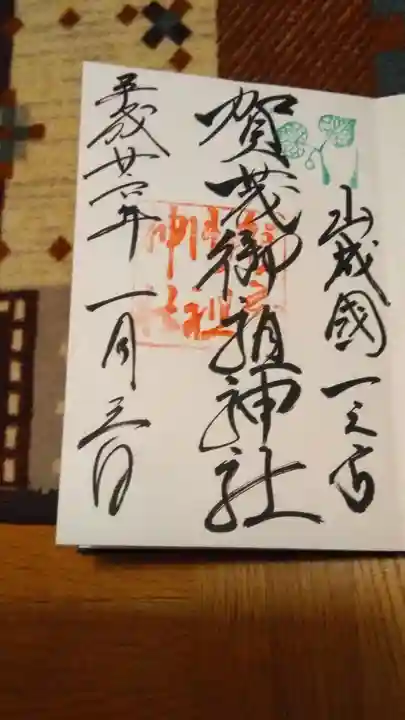 山城國一之宮
賀茂御祖神社
平成廿六年一月三日
御祖
神社